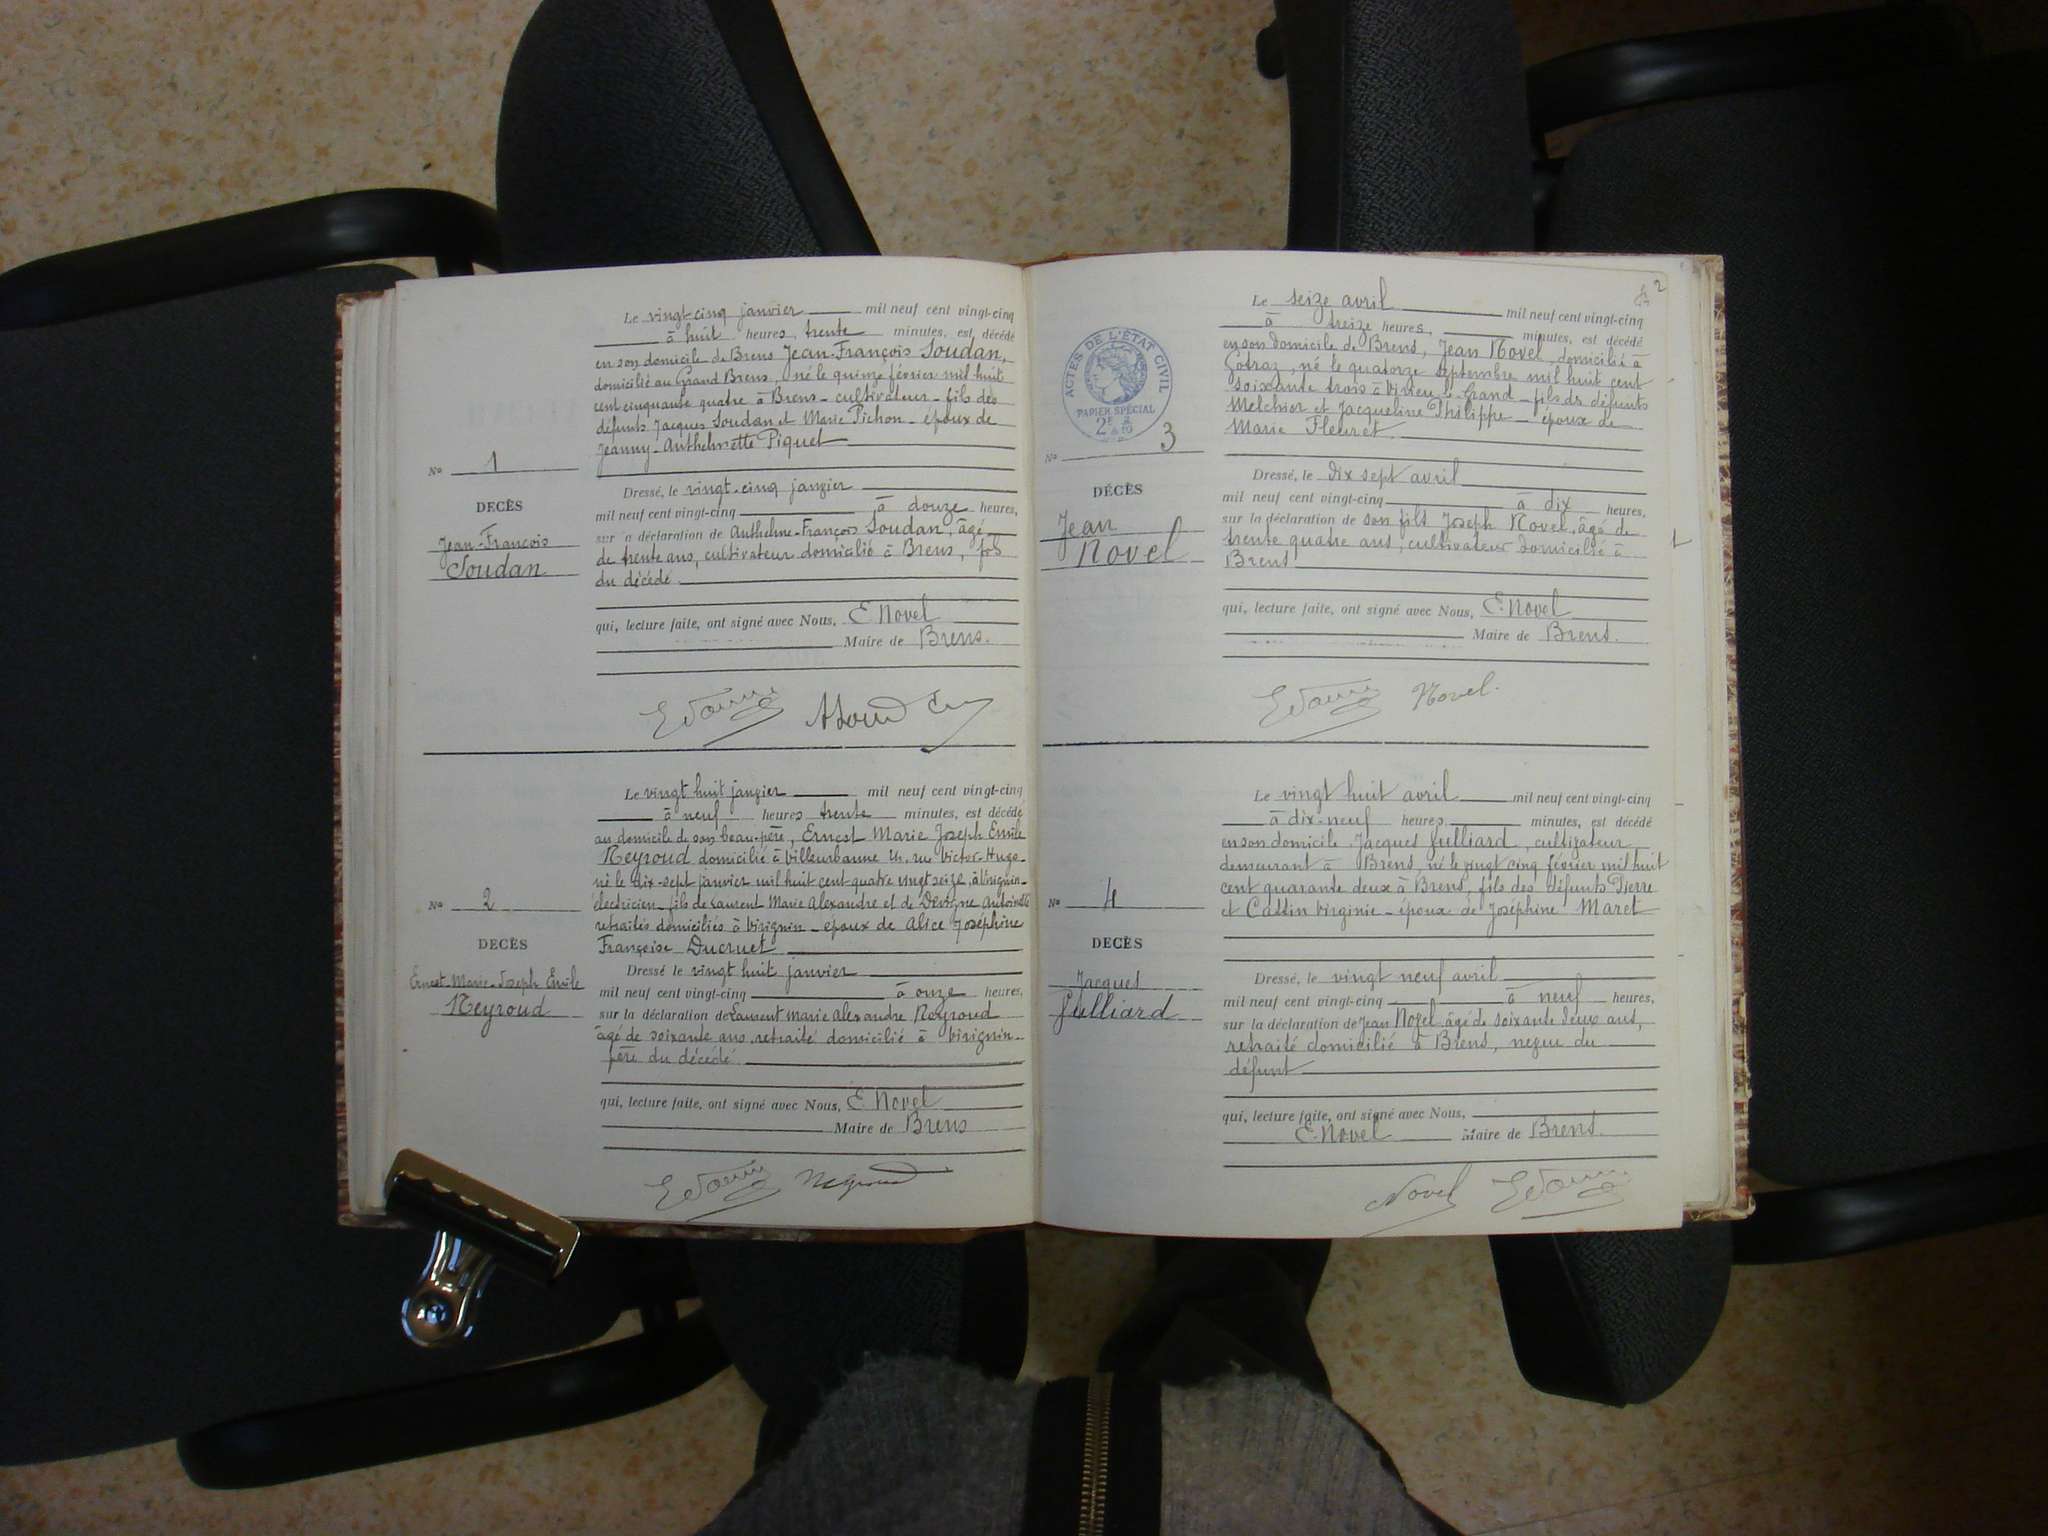 Le vingt-cinq janvier mil neuf cent vingt-cinq
à huit heures, trente minutes, est décédé
en son domicile de Brens Jean-François Soudan,
domicilié au Grand Brens, né le quinze février mil huit
cent cinquante quatre à Brens - cultivateur - fils des
défunts Jacques Soudan et Marie Pichon - époux de
Jeanny-Anthelmette Piquet
No 1
DÉCÈS
Jean-François
Soudan
Dressé, le vingt-cinq janvier
mil neuf cent vingt-cinq à douze heures,
sur a déclaration de Anthelme-François Soudan, âgé
de trente ans, cultivateur domicilié à Brens, fils
du décédé.
qui, lecture faite, ont signé avec Nous, E. Novel
Maire de Brens.
Le vingt huit janvier mil neuf cent vingt-cinq
à neuf heures trente minutes, est décédé
au domicile de son beau-père, Ernest Marie Joseph Emile
Neyroud domicilié à Villeurbanne rue Victor-Hugo-
né le dix-sept janvier mil huit cent quatre vingt seize, à Virignin-
électricien - fils de Laurent Marie Alexandre et de Devigne Antoinette
retraités domiciliés à Virignin - époux de Alice Joséphine
Françoise Ducruet
No 2
DECÈS
Ernest-Marie-Joseph Emile
Neyroud
Dressé le vingt huit janvier
mil neuf cent vingt-cinq à onze heures,
sur la déclaration de Laurent Marie Alexandre Neyroud
âgé de soixante ans, retraité domicilié à Virignin-
père du décédé.
qui, lecture faite, ont signé avec Nous, E. Novel
Maire de Brens
Neyroud
2
Le seize avril mil neuf cent vingt-cinq
à treize heures, minutes, est décédé
en son domicile de Brens, Jean Novel, domicilié à
Cotraz, né le quatorze septembre mil huit cent
soixante trois à Virieu-le-Grand - fils de défunts
Melchior et Jacqueline Philippe - époux de
Marie Fleuret.
ACTES DE L'ÉTAT CIVIL
PAPIER SPÉCIAL
No 3
DÉCÈS
Jean
Novel
Dressé, le dix sept avril
mil neuf cent vingt-cinq à dix heures,
sur la déclaration de son fils Joseph Novel, âgé de
trente quatre ans, cultivateur domicilié à
Brens
qui, lecture faite, ont signé avec Nous, E. Novel
Maire de Brens.
Novel.
Le vingt huit avril mil neuf cent vingt-cinq
à dix-neuf heures, minutes, est décédé
en son domicile Jacques Julliard, cultivateur
demeurant à Brens, né le vingt cinq février mil huit
cent quarante deux à Brens, fils des défunts Pierre
et Cattin Virginie - époux de Joséphine Maret
No 4
DECÈS
Jacques
Julliard
Dressé, le vingt neuf avril
mil neuf cent vingt-cinq à neuf heures,
sur la déclaration de Jean Novel âgé de soixante deux ans,
retraité domicilié à Brens, neveu du
défunt
qui, lecture faite, ont signé avec Nous,
E. Novel Maire de Brens.
Novel